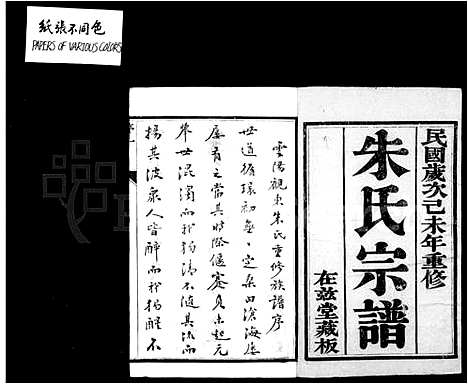 紙張不同色
PAPERS OF VARIOUS COLORS
民國歲次己未年重修
朱氏宗譜
在茲堂藏板
雲陽觀東朱氏重修族譜序
世道循環初無一定桑田滄海屢
屢有之常其時際偃蹇貞未起元
舉世混濁而我獨清不隨其流而
揚其波眾人皆醉而我獨醒不